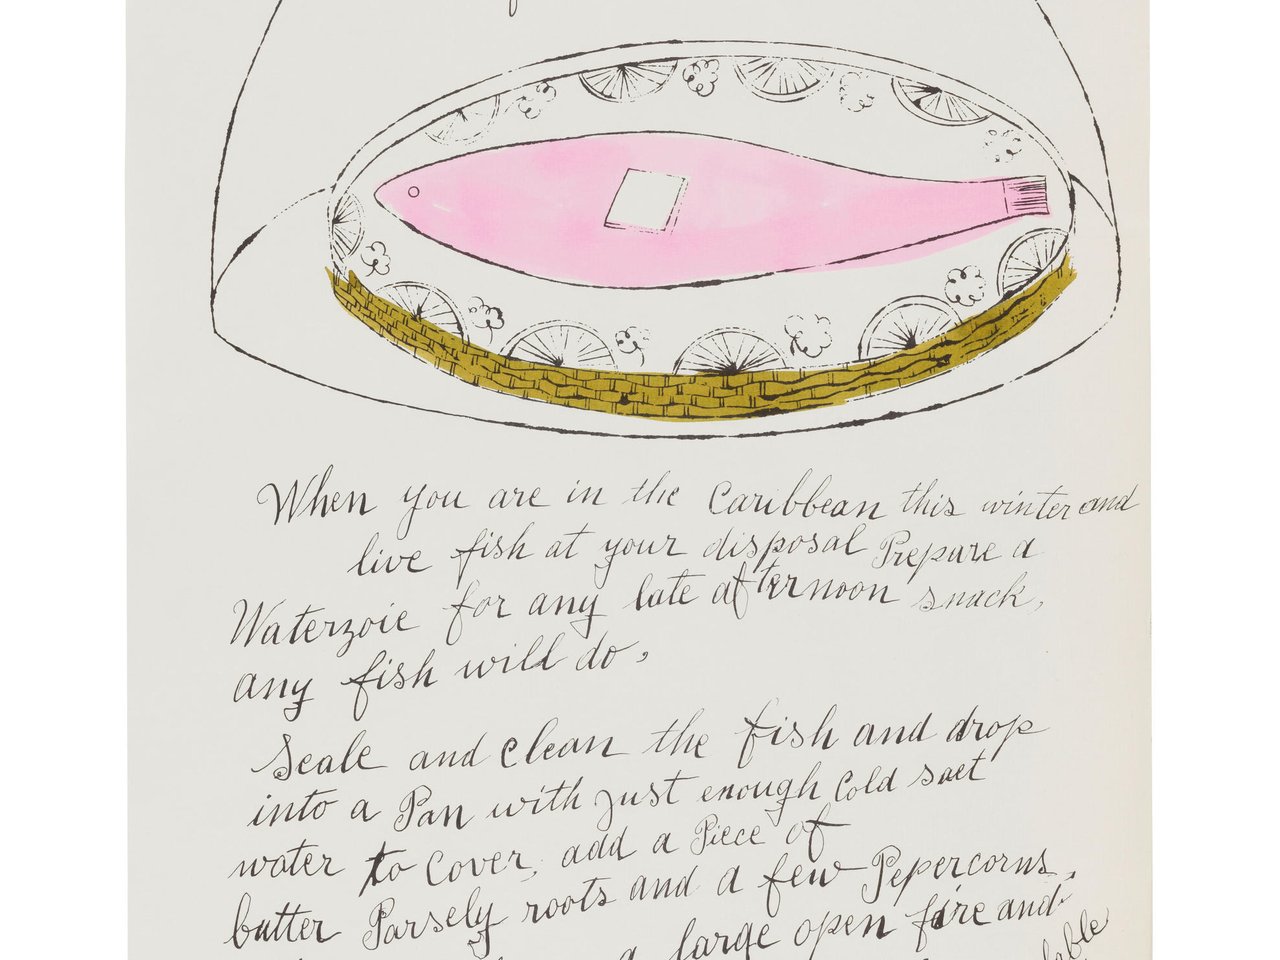 When you are in the Caribbean this winter and
live fish at your disposal Prepare a
Waterzoie for any late afternoon snack,
any fish will do,
Scale and clean the fish and drop
into a Pan with just enough Cold salt
water to Cover, add a Piece of
butter Parsely roots and a few Pepercorns,
a large open fire and